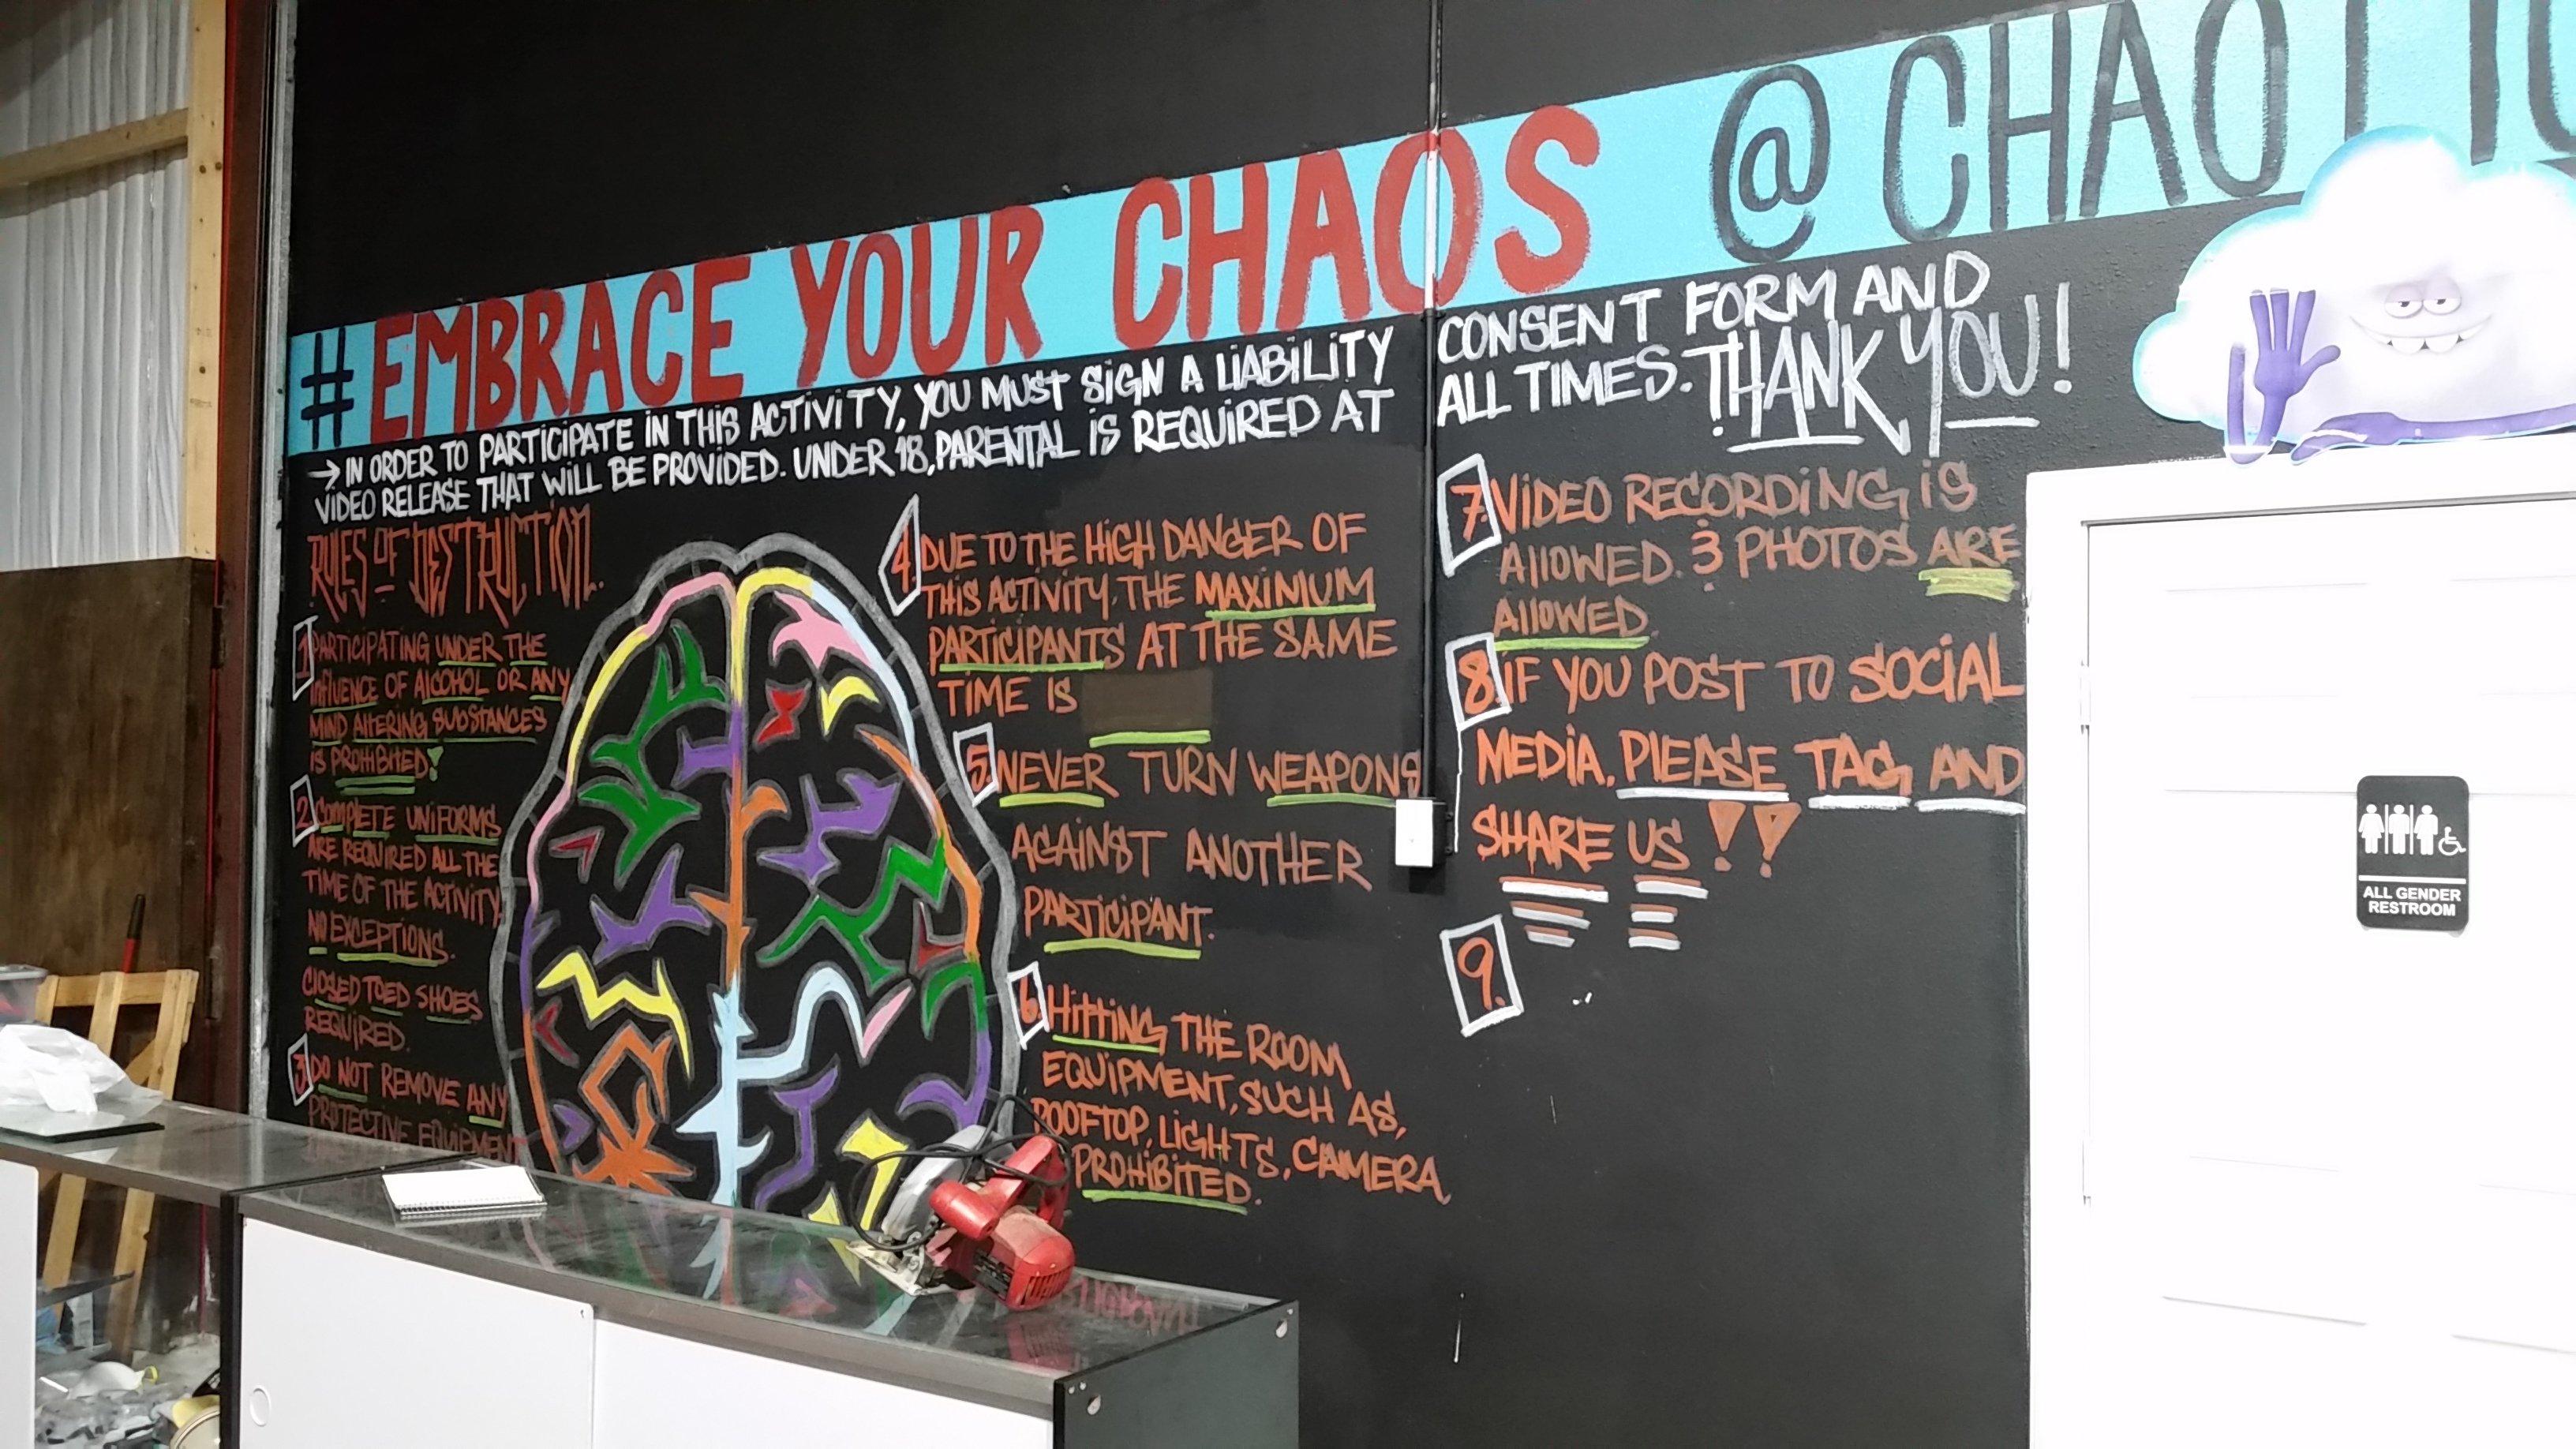 # EMBRACE YOUR CHAOS @ CHAOTIC
→ IN ORDER TO PARTICIPATE IN THIS ACTIVITY, YOU MUST SIGN A LIABILITY CONSENT FORM AND
VIDEO RELEASE THAT WILL BE PROVIDED. UNDER 18, PARENTAL IS REQUIRED AT ALL TIMES. THANK YOU!
RULES OF DESTRUCTION.
1 PARTICIPATING UNDER THE
INFLUENCE OF ALCOHOL OR ANY
MIND ALTERING SUBSTANCES
IS PROHIBITED!
2. COMPLETE UNIFORMS
ARE REQUIRED ALL THE
TIME OF THE ACTIVITY
NO EXCEPTIONS.
CLOSED TOED SHOES
REQUIRED.
3 DO NOT REMOVE ANY
PROTECTIVE EQUIPMENT
4. DUE TO THE HIGH DANGER OF
THIS ACTIVITY, THE MAXINIUM
PARTICIPANTS AT THE SAME
TIME IS
5. NEVER TURN WEAPONS
AGAINST ANOTHER
PARTICIPANT.
6. HITTING THE ROOM
EQUIPMENT, SUCH AS,
ROOFTOP, LIGHTS, CAMERA
PROHIBITED.
7. VIDEO RECORDING IS
ALLOWED. 3 PHOTOS ARE
ALLOWED.
8. IF YOU POST TO SOCIAL
MEDIA, PLEASE TAG AND
SHARE US !!
9.
ALL GENDER
RESTROOM